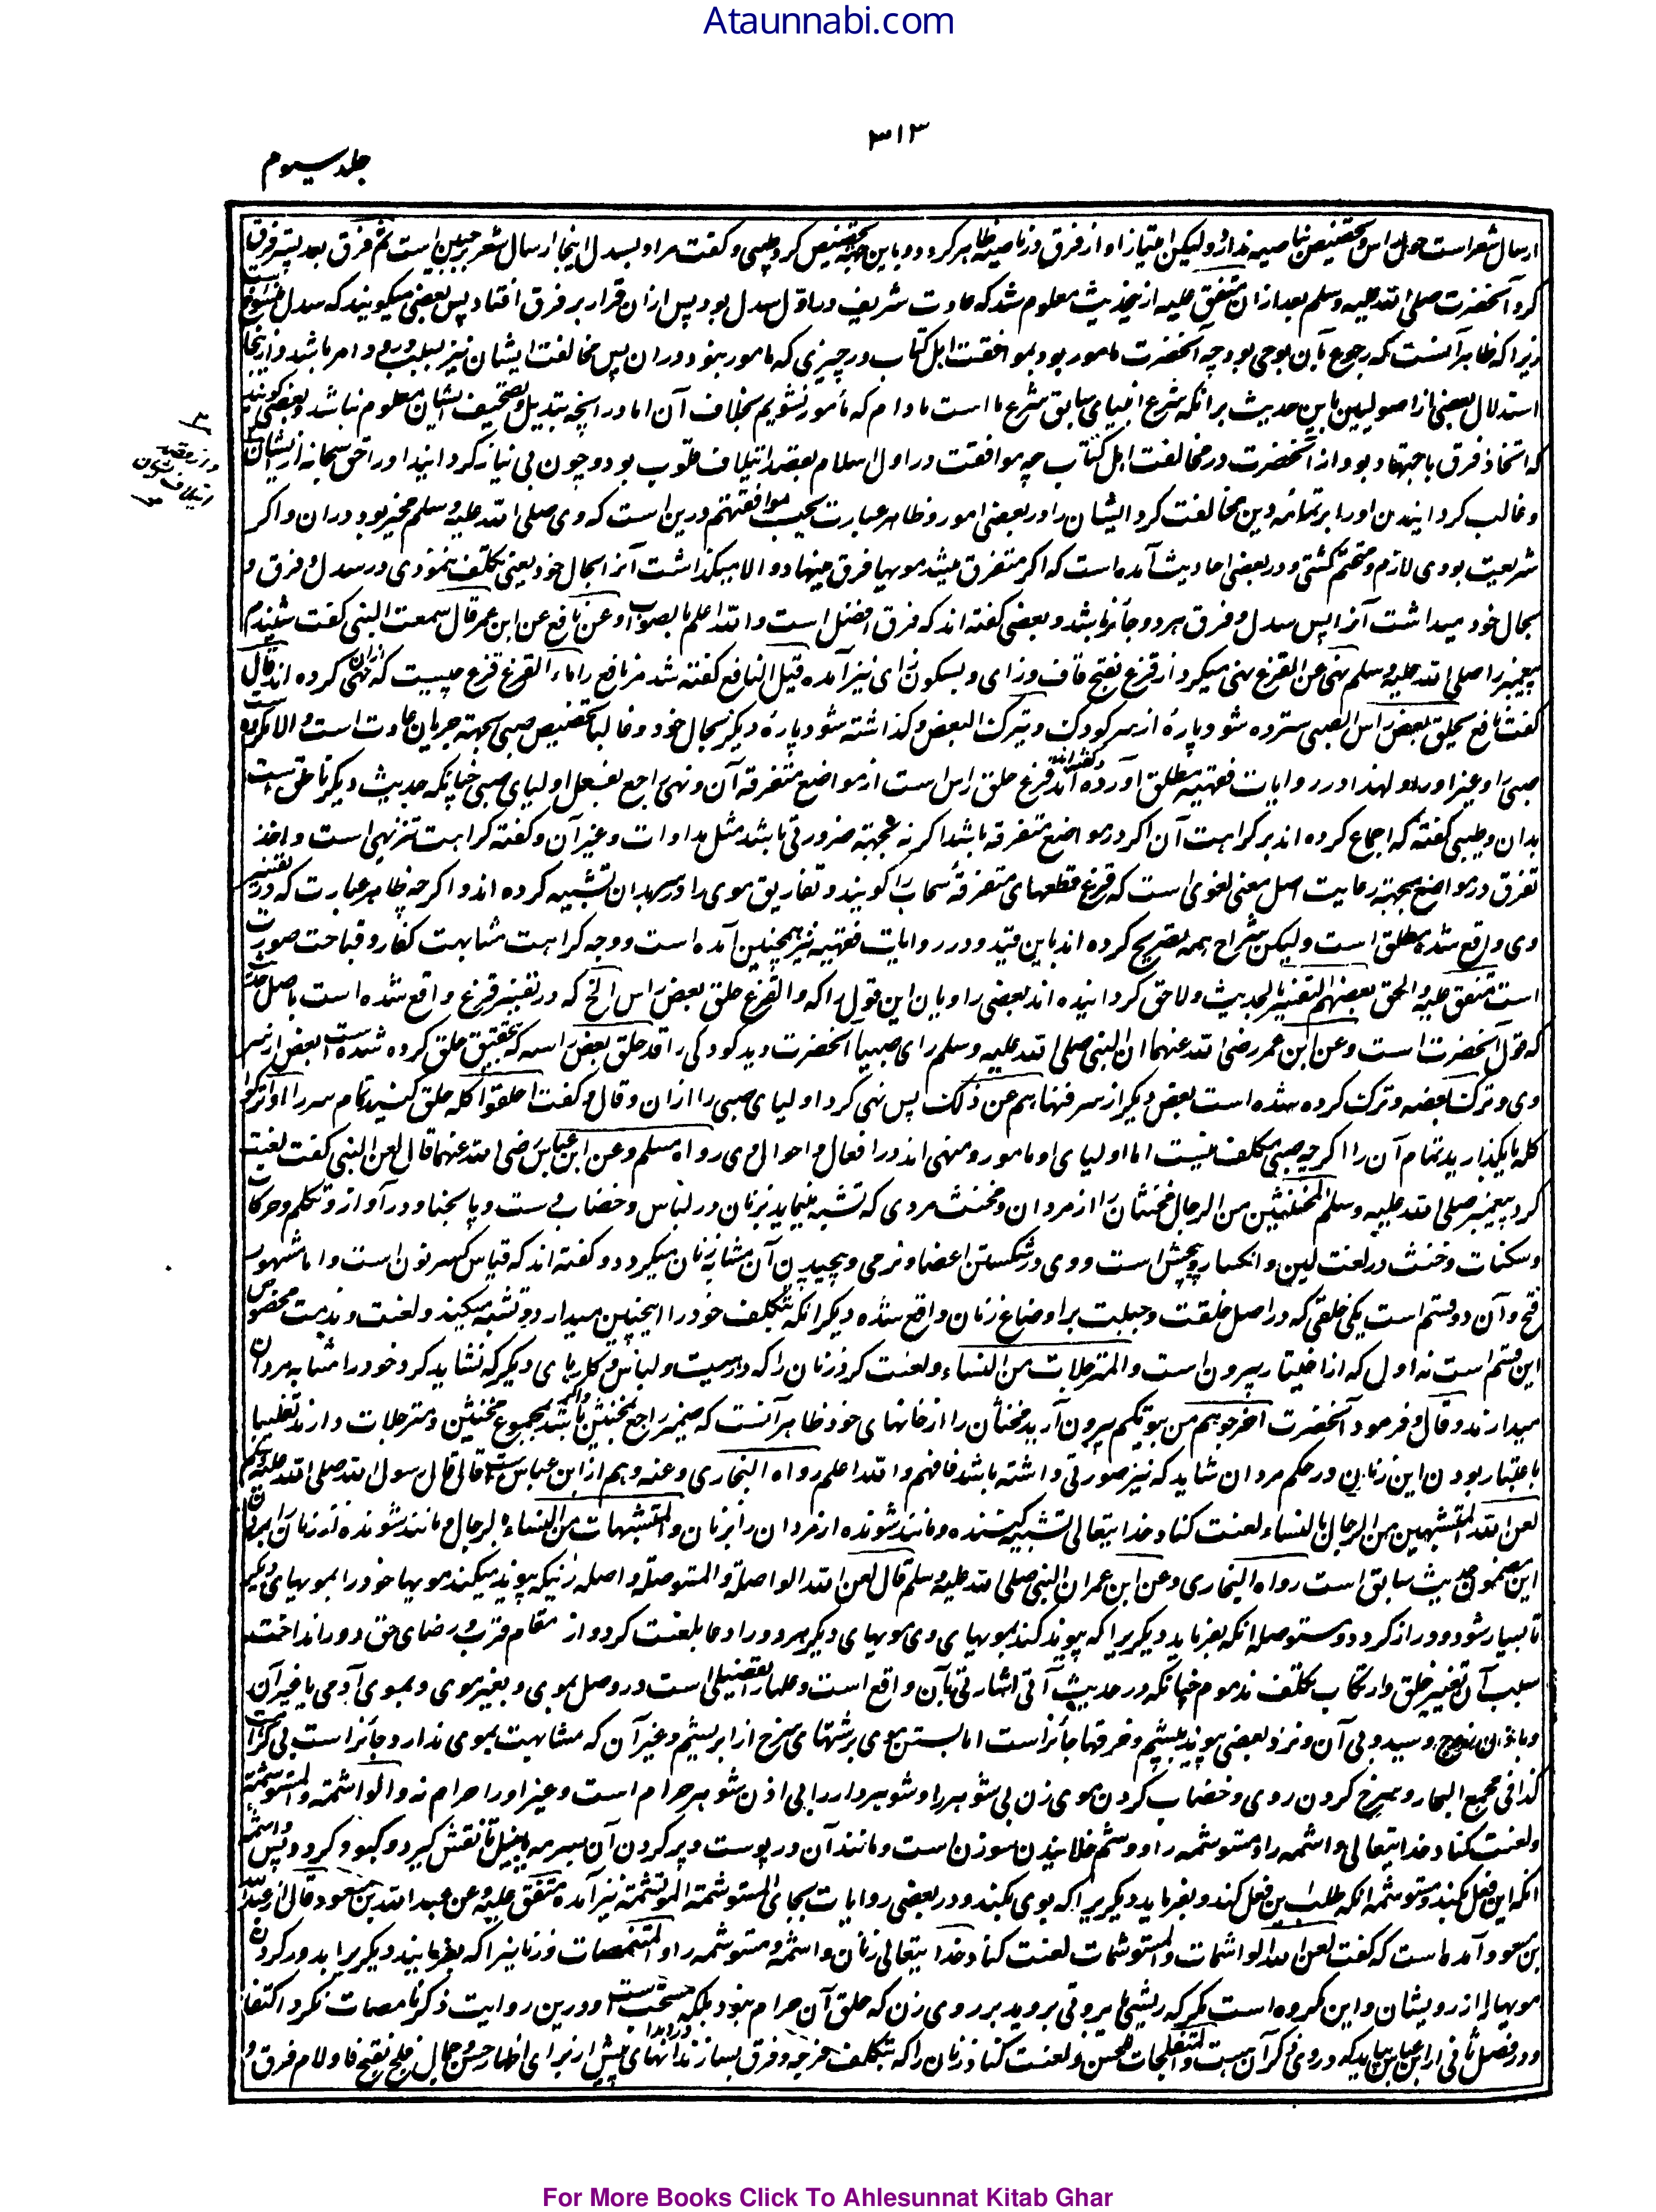 Ataunnabi.com
۳۱۳
جلد سیوم
ارسال شعر است حول راس و تخصیص بناصیه ندارد ولیکن امتیاز او از فرق در ناصیه ظاهر گردد و باین جهة تخصیص کرد طیبی و گفت مراد بسدل اینجا ارسال شعر بر جبین است ثم فرق بعد پستر فرق
کرد آنحضرت صلی الله علیه وسلم بعد ازان متفق علیه ازین حدیث معلوم شد که عادت شریف در اول سدل بود پس ازان قرار بر فرق افتاد پس بعضی میگویند که سدل منسوخ است
زیرا که ظاهر آنست که رجوع بآن بوحی بود چه آنحضرت مامور بود بموافقت اهل کتاب در چیزی که مامور نبود دران پس مخالفت ایشان نیز بسبب ورود امر باشد و ازینجا
استدلال بعضی از اصولیین باین حدیث برانکه شرع انبیای سابق شرع ما است مادام که مأمور نشویم بخلاف آن اما در انچه تبدیل و تصحیف ایشان معلوم نباشد و بعضی گویند
که اتخاذ فرق باجتهاد بود از آنحضرت در مخالفت اهل کتاب چه موافقت در اول اسلام بقصد ایتلاف قلوب بود و چون بی نیاز گردانید او را حق سبحانه از ایشان
و غالب گردانیدن او را بر تمامه دین مخالفت کرد ایشان را در بعضی امور و ظاهر عبارت یحب موافقتهم درین است که وی صلی الله علیه وسلم مخیر بود دران و اگر
شریعت بودی لازم و متحتم گشتی و در بعضی احادیث آمده است که اگر متفرق میشد مویها فرق مینهاد و الا میگذاشت آنرا بحال خود یعنی تکلف ننمودی در سدل و فرق و
بحال خود میداشت آنرا پس سدل و فرق هر دو جائز باشد و بعضی گفته اند که فرق افضل است والله اعلم بالصواب وعن نافع عن ابن عمر قال سمعت النبی گفت شنیدم
پیغمبر را صلی الله علیه وسلم نهی عن القزع نهی میکرد از قزع بفتح قاف و زای و بسکون زای نیز آمده قیل لنافع گفته شد مر نافع را ما القزع قزع چیست که ازان نهی کرده اند قال
گفت نافع یحلق بعض راس الصبی سترده شود پارهٔ از سر کودک و یترک البعض و گذاشته شود پارهٔ دیگر بحال خود و غالبا تخصیص صبی بجهة جریان عادت است والا مکروه است
صبی را و غیر او را و لهذا در روایات فقهیه مطلق آورده اند قزع حلق راس است از مواضع متفرقه آن و نهی راجع بفعل اولیای صبی چنانکه حدیث دیگر ناطق است
بدان و طیبی گفته که اجماع کرده اند بر کراهت آن اگر در مواضع متفرقه باشد اگر نه بجهة ضرورتی باشد مثل مداوات و غیر آن و گفته کراهت تنزیهی است و اخذ
تفرق در مواضع بجهة رعایت اصل معنی لغوی است که قزع قطعهای متفرقهٔ سحاب را گویند و تفاریق موی را در سر بدان تشبیه کرده اند و اگرچه ظاهر عبارت که در تفسیر
وی واقع شده مطلق است ولیکن شراح همه تصریح کرده اند باین قید و در روایات فقهیه نیز همچنین آمده است و وجه کراهت مشابهت کفار و قباحت صورت
است متفق علیه والحق بعضهم التفسیر بالحدیث و لاحق گردانیده اند بعضی راویان این قول را که والقزع حلق بعض راس الخ که در تفسیر قزع واقع شده است باصل حدیث
که قول آنحضرت است وعن ابن عمر رضی الله عنهما ان النبی صلی الله علیه وسلم رای صبیا آنحضرت دید کودکی را قد حلق بعض راسه که بتحقیق حلق کرده شده است بعض از سر
وی و ترک بعضه و ترک کرده شده است بعض دیگر از سر فنهاهم عن ذلک پس نهی کرد اولیای صبی را ازان وقال و گفت احلقوا کله حلق کنید تمام سر را او اترکوا
کله یا بگذارید تمام آن را اگرچه صبی مکلف نیست اما اولیای او مامور و منهی اند در افعال و احوال وی رواه مسلم وعن ابن عباس رضی الله عنهما قال لعن النبی گفت لعنت
کرد پیغمبر صلی الله علیه وسلم المخنثین من الرجال مخنثان را از مردان و مخنث مردی که تشبه مینماید بزنان در لباس و خضاب دست و پا بحنا و در آواز و تکلم و حرکات
و سکنات و خنث در لغت لین و انکسار و پیچش است و وی در شکستن اعضا و نرمی و پیچیدن آن مشابه زنان میگردد و گفته اند که قیاس کسر نون است و اما مشهور
فتح و آن دو قسم است یکی خلقی که در اصل خلقت و جبلت بر اوضاع زنان واقع شده دیگر انکه بتکلف خود را اینچنین میدارد و تشبه میکند و لعنت و مذمت مخصوص
این قسم است نه اول که از اختیار بیرون است والمترجلات من النساء و لعنت کرد زنان را که در هیئت و لباس و کارهای دیگر که نشاید کرد خود را مشابه مردان
میدارند وقال و فرمود آنحضرت اخرجوهم من بیوتکم بیرون آرید مخنثان را از خانهای خود ظاهر آنست که ضمیر راجع بمخنثین باشد و اگر بمجموع مخنثین و مترجلات دارند تغلیبا
باعتبار بودن این زنان در حکم مردان شاید که نیز صورتی داشته باشد فافهم والله اعلم رواه البخاری وعنه و هم از ابن عباس است قال قال رسول الله صلی الله علیه وسلم
لعن الله المتشبهین من الرجال بالنساء لعنت کناد خدایتعالی تشبیه کننده و مانند شونده از مردان را بزنان والمتشبهات من النساء بالرجال و مانند شونده از زنان را بمردان
این مضمون حدیث سابق است رواه البخاری وعن ابن عمر ان النبی صلی الله علیه وسلم قال لعن الله الواصلة والمستوصلة واصله زنیکه پیوند میکند مویها خود را بمویهای دیگر
تا بسیار شود و دراز گردد و مستوصله انکه بفرماید دیگریرا که پیوند کند بمویهای وی مویهای دیگر هر دو را دعا بلعنت کرد و از مقام قرب و رضای حق دور انداخت
سبب آن تغییر خلق و ارتکاب تکلف مذموم چنانکه در حدیث آتی اشارتی بآن واقع است و علما را تفصیلی است در وصل بموی و بغیر موی و بموی آدمی یا غیر آن
و باذن زوج و سید و بی آن و نزد بعضی پیوند بپشم و خرقها جائز است اما بستن موی برشتهای سرخ از ابریشم و غیر آن که مشابهت بموی ندارد جائز است بی کراهت
کذا فی مجمع البحار و سرخ کردن روی و خضاب کردن موی زن بی شوهر را و شوهردار را بی اذن شوهر حرام است و غیر او را حرام نه والواشمة والمستوشمة
و لعنت کناد خدایتعالی واشمه را و مستوشمه را و وشم خلانیدن سوزن است و مانند آن در پوست و پر کردن آن بسرمه یا بنیل تا نقش گیرد و کبود گردد پس واشمه
انکه این فعل بکند و مستوشمه انکه طلب این فعل کند و بفرماید دیگریرا که بوی بکند و در بعضی روایات بجای المستوشمة الموتشمة نیز آمده متفق علیه وعن عبدالله بن مسعود قال از عبدالله
بن مسعود آمده است که گفت لعن الله الواشمات والمستوشمات لعنت کناد خدایتعالی زنان واشمه و مستوشمه را والمتنمصات و زنانیرا که بفرمایند دیگریرا بدور کردن
مویها را از رویشان و این مکروه است مگر که ریشی یا بروتی بروید بر روی زن که حلق آن حرام نبود بلکه مستحب است و درین روایت ذکر نامصات نکرد اکتفا
و در فصل ثانی از ابن عباس بیاید که در وی ذکر آن هست والمتفلجات للحسن و لعنت کناد زنان را که بتکلف فرجه و فرق بسازند در دندانهای پیش از برای اظهار حسن و جمال فلج بفتح فا و لام فرق و
For More Books Click To Ahlesunnat Kitab Ghar